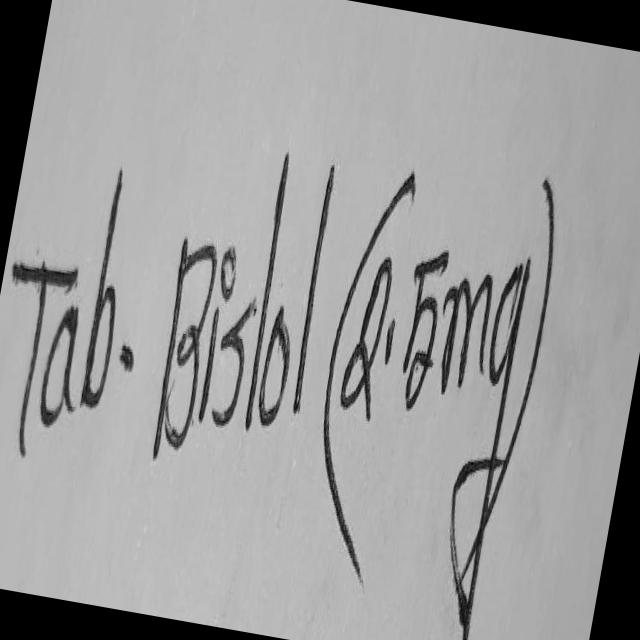 Tab. Bislol (2.5mg)